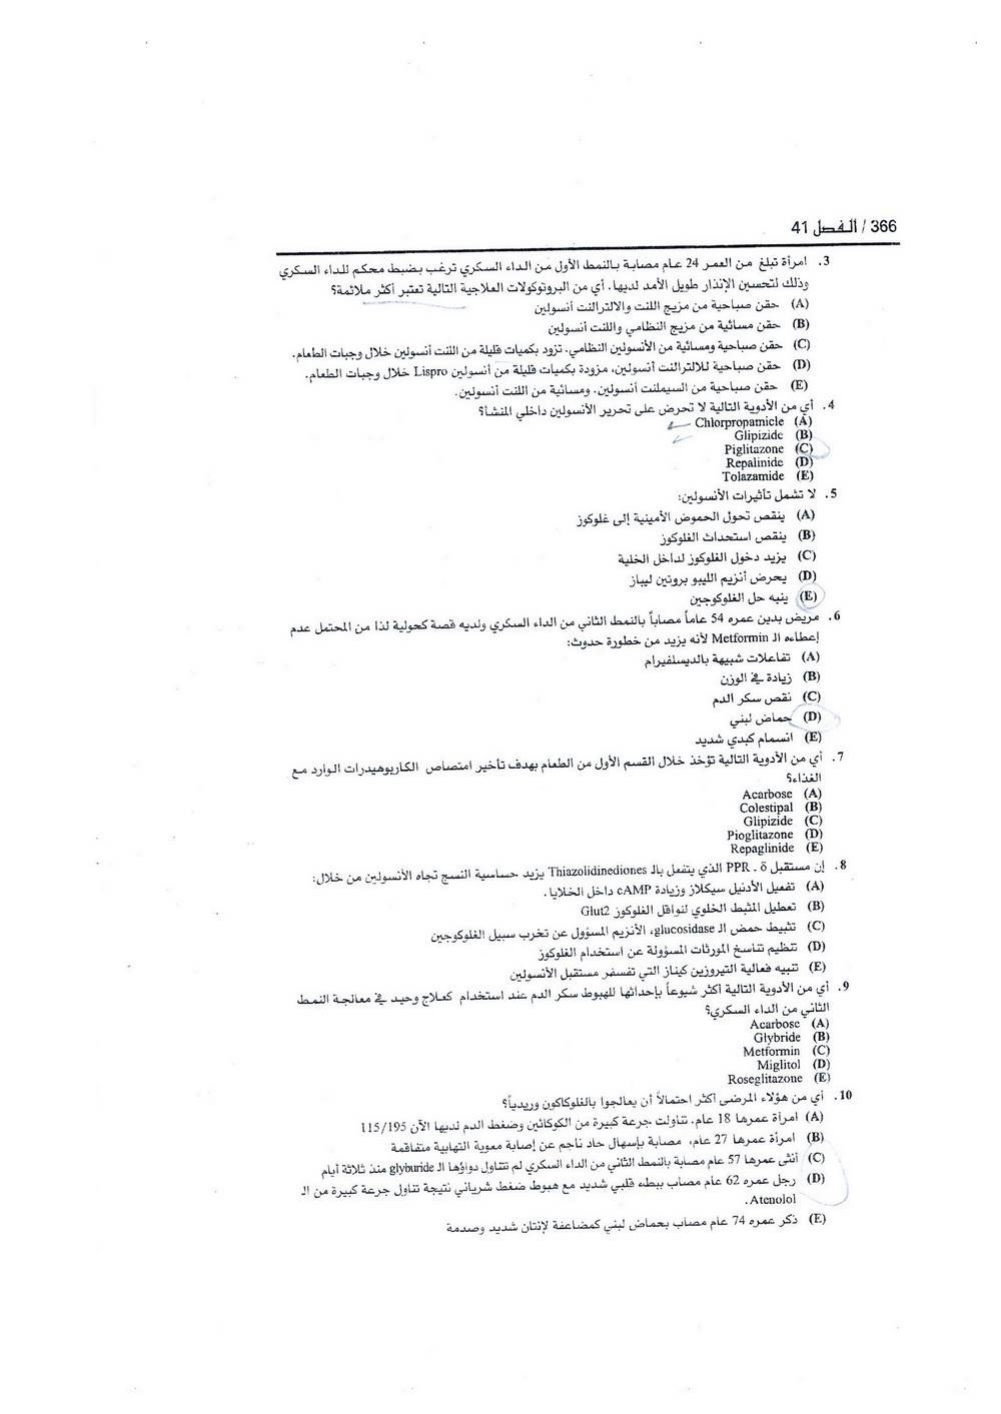 366 / الفصل 41
3. امرأة تبلغ من العمر 24 عام مصابة بالنمط الأول من الداء السكري ترغب بضبط محكم للداء السكري
وذلك لتحسين الإنذار طويل الأمد لديها. أي من البروتوكولات العلاجية التالية تعتبر أكثر ملائمة؟
(A) حقن صباحية من مزيج اللنت والالترالنت أنسولين
(B) حقن مسائية من مزيج النظامي واللنت أنسولين
(C) حقن صباحية ومسائية من الأنسولين النظامي. تزود بكميات قليلة من اللنت أنسولين خلال وجبات الطعام.
(D) حقن صباحية للالترالنت أنسولين، مزودة بكميات قليلة من أنسولين Lispro خلال وجبات الطعام.
(E) حقن صباحية من السيملنت أنسولين. ومسائية من اللنت أنسولين.
4. أي من الأدوية التالية لا تحرض على تحرير الأنسولين داخلي المنشأ؟
(A) Chlorpropamicle
(B) Glipizide
(C) Piglitazone
(D) Repalinide
(E) Tolazamide
5. لا تشمل تأثيرات الأنسولين:
(A) ينقص تحول الحموض الأمينية إلى غلوكوز
(B) ينقص استحداث الغلوكوز
(C) يزيد دخول الغلوكوز لداخل الخلية
(D) يحرض أنزيم الليبو بروتين ليباز
(E) ينبه حل الغلوكوجين
6. مريض بدين عمره 54 عاماً مصاباً بالنمط الثاني من الداء السكري ولديه قصة كحولية لذا من المحتمل عدم
إعطاءه الـ Metformin لأنه يزيد من خطورة حدوث:
(A) تفاعلات شبيهة بالديسلفيرام
(B) زيادة في الوزن
(C) نقص سكر الدم
(D) حماض لبني
(E) انسمام كبدي شديد
7. أي من الأدوية التالية تؤخذ خلال القسم الأول من الطعام بهدف تأخير امتصاص الكاربوهيدرات الوارد مع
الغذاء؟
(A) Acarbose
(B) Colestipal
(C) Glipizide
(D) Pioglitazone
(E) Repaglinide
8. إن مستقبل PPR - δ الذي يتفعل بالـ Thiazolidinediones يزيد حساسية النسج تجاه الأنسولين من خلال:
(A) تفعيل الأدنيل سيكلاز وزيادة cAMP داخل الخلايا.
(B) تعطيل المثبط الخلوي لنواقل الغلوكوز Glut2
(C) تثبيط حمض الـ glucosidase، الأنزيم المسؤول عن تخرب سبيل الغلوكوجين
(D) تنظيم تناسخ المورثات المسؤولة عن استخدام الغلوكوز
(E) تنبيه فعالية التيروزين كيناز التي تفسفر مستقبل الأنسولين
9. أي من الأدوية التالية أكثر شيوعاً بإحداثها للهبوط سكر الدم عند استخدام كعلاج وحيد في معالجة النمط
الثاني من الداء السكري؟
(A) Acarbose
(B) Glybride
(C) Metformin
(D) Miglitol
(E) Roseglitazone
10. أي من هؤلاء المرضى أكثر احتمالاً أن يعالجوا بالغلوكاكون وريدياً؟
(A) امرأة عمرها 18 عام. تناولت جرعة كبيرة من الكوكائين وضغط الدم لديها الآن 115/195
(B) امرأة عمرها 27 عام، مصابة بإسهال حاد ناجم عن إصابة معوية التهابية متفاقمة
(C) أنثى عمرها 57 عام مصابة بالنمط الثاني من الداء السكري لم تتناول دواؤها الـ glyburide منذ ثلاثة أيام
(D) رجل عمره 62 عام مصاب ببطء قلبي شديد مع هبوط ضغط شرياني نتيجة تناول جرعة كبيرة من الـ
Atenolol.
(E) ذكر عمره 74 عام مصاب بحماض لبني كمضاعفة لإنتان شديد وصدمة